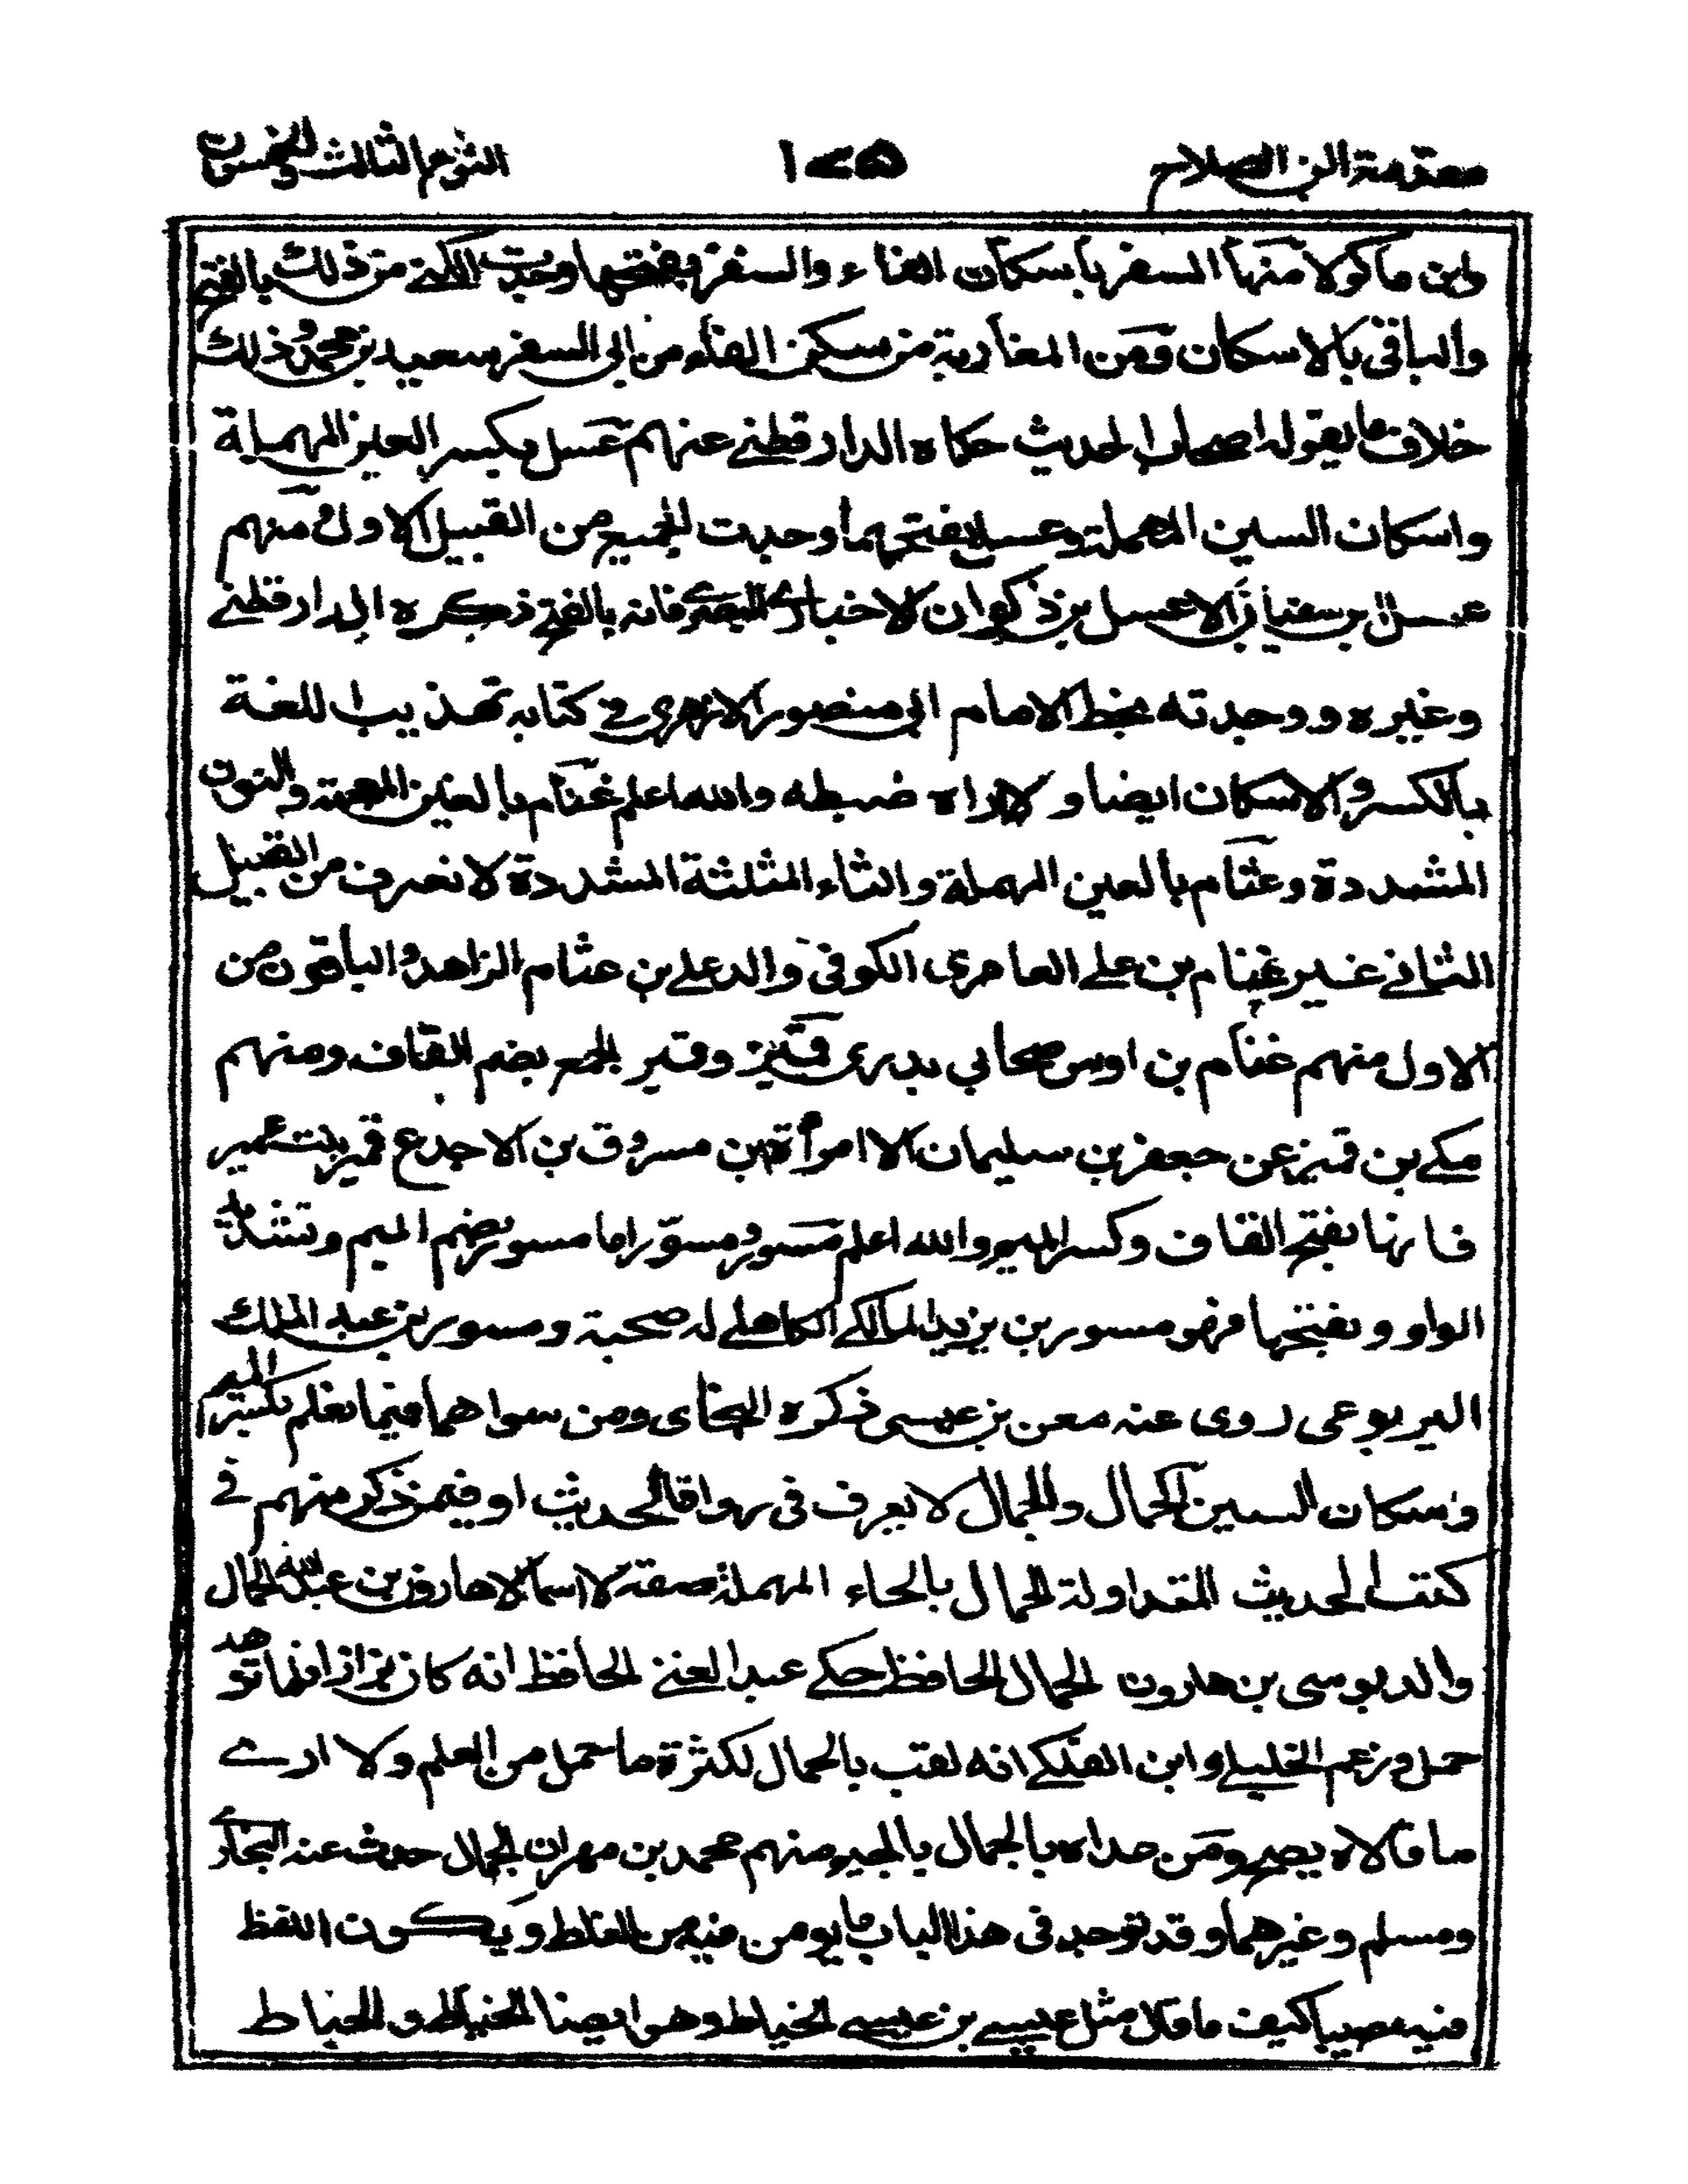 مقدمة ابن الصلاح ١٢٥ النوع الثالث والخمسون
وابن ماكولا منها السفر باسكان الفاء والسفر بفتحها وجدت الكنى من ذلك بالفتح
والباقي بالاسكان ومن المغاربة من سكن الفاء من ابي السفر سعيد بن محمد وذلك
خلاف ما يقوله اصحاب الحديث حكاه الدارقطني عنهم عسل بكسر العين المهملة
واسكان السين المهملة وعسل بفتحهما وجدت الجميع من القبيل الاول ومنهم
عسل بن سفيان الا عسل بن ذكوان الاخباري البصري فانه بالفتح ذكره الدارقطني
وغيره ووجدته بخط الامام ابي منصور الازهري في كتابه تهذيب اللغة
بالكسر والاسكان ايضا ولا اراه ضبطه والله اعلم غنام بالغين المعجمة والنون
المشددة وعثام بالعين المهملة والثاء المثلثة المشددة لا نعرف من القبيل
الثاني غير عثام بن علي العامري الكوفي والد علي بن عثام الزاهد والباقون من
الاول منهم غنام بن اوس صحابي بدري قمير وقمير الجمع بضم القاف ومنهم
مكي بن قمير عن جعفر بن سليمان الا امرأة بن مسروق بن الاجدع قمير بنت عمير
فانها بفتح القاف وكسر الميم والله اعلم مسور ومسوّر اما مسور بضم الميم وتشديد
الواو وبفتحها فهو مسور بن يزيد المالكي الكاهلي له صحبة ومسور بن عبد الملك
اليربوعي روى عنه معن بن عيسى ذكره البخاري ومن سواهما فيما نعلم بكسر الميم
واسكان السين الحمال والجمال لا يعرف في رواة الحديث او فيمن ذكر منهم في
كتب الحديث المتداولة الحمال بالحاء المهملة صفة لا اسما الا هارون بن عبد الله الحمال
والد موسى بن هارون الحمال الحافظ حكى عبد الغني الحافظ انه كان بزازا فلما تزهد
حمل وزعم الخليلي وابن الفلكي انه لقب بالحمال لكثرة ما حمل من العلم ولا ارى
ما قالاه يصح ومن عداه بالجمال بالجيم منهم محمد بن مهران الجمال حدث عنه البخاري
ومسلم وغيرهما وقد توجد في هذا الباب ما يومن فيه من الغلط ويكون اللفظ
فيه مصيبا كيف ما قال مثل عيسى بن عيسى الخياط وهو ايضا الخباط والحياط